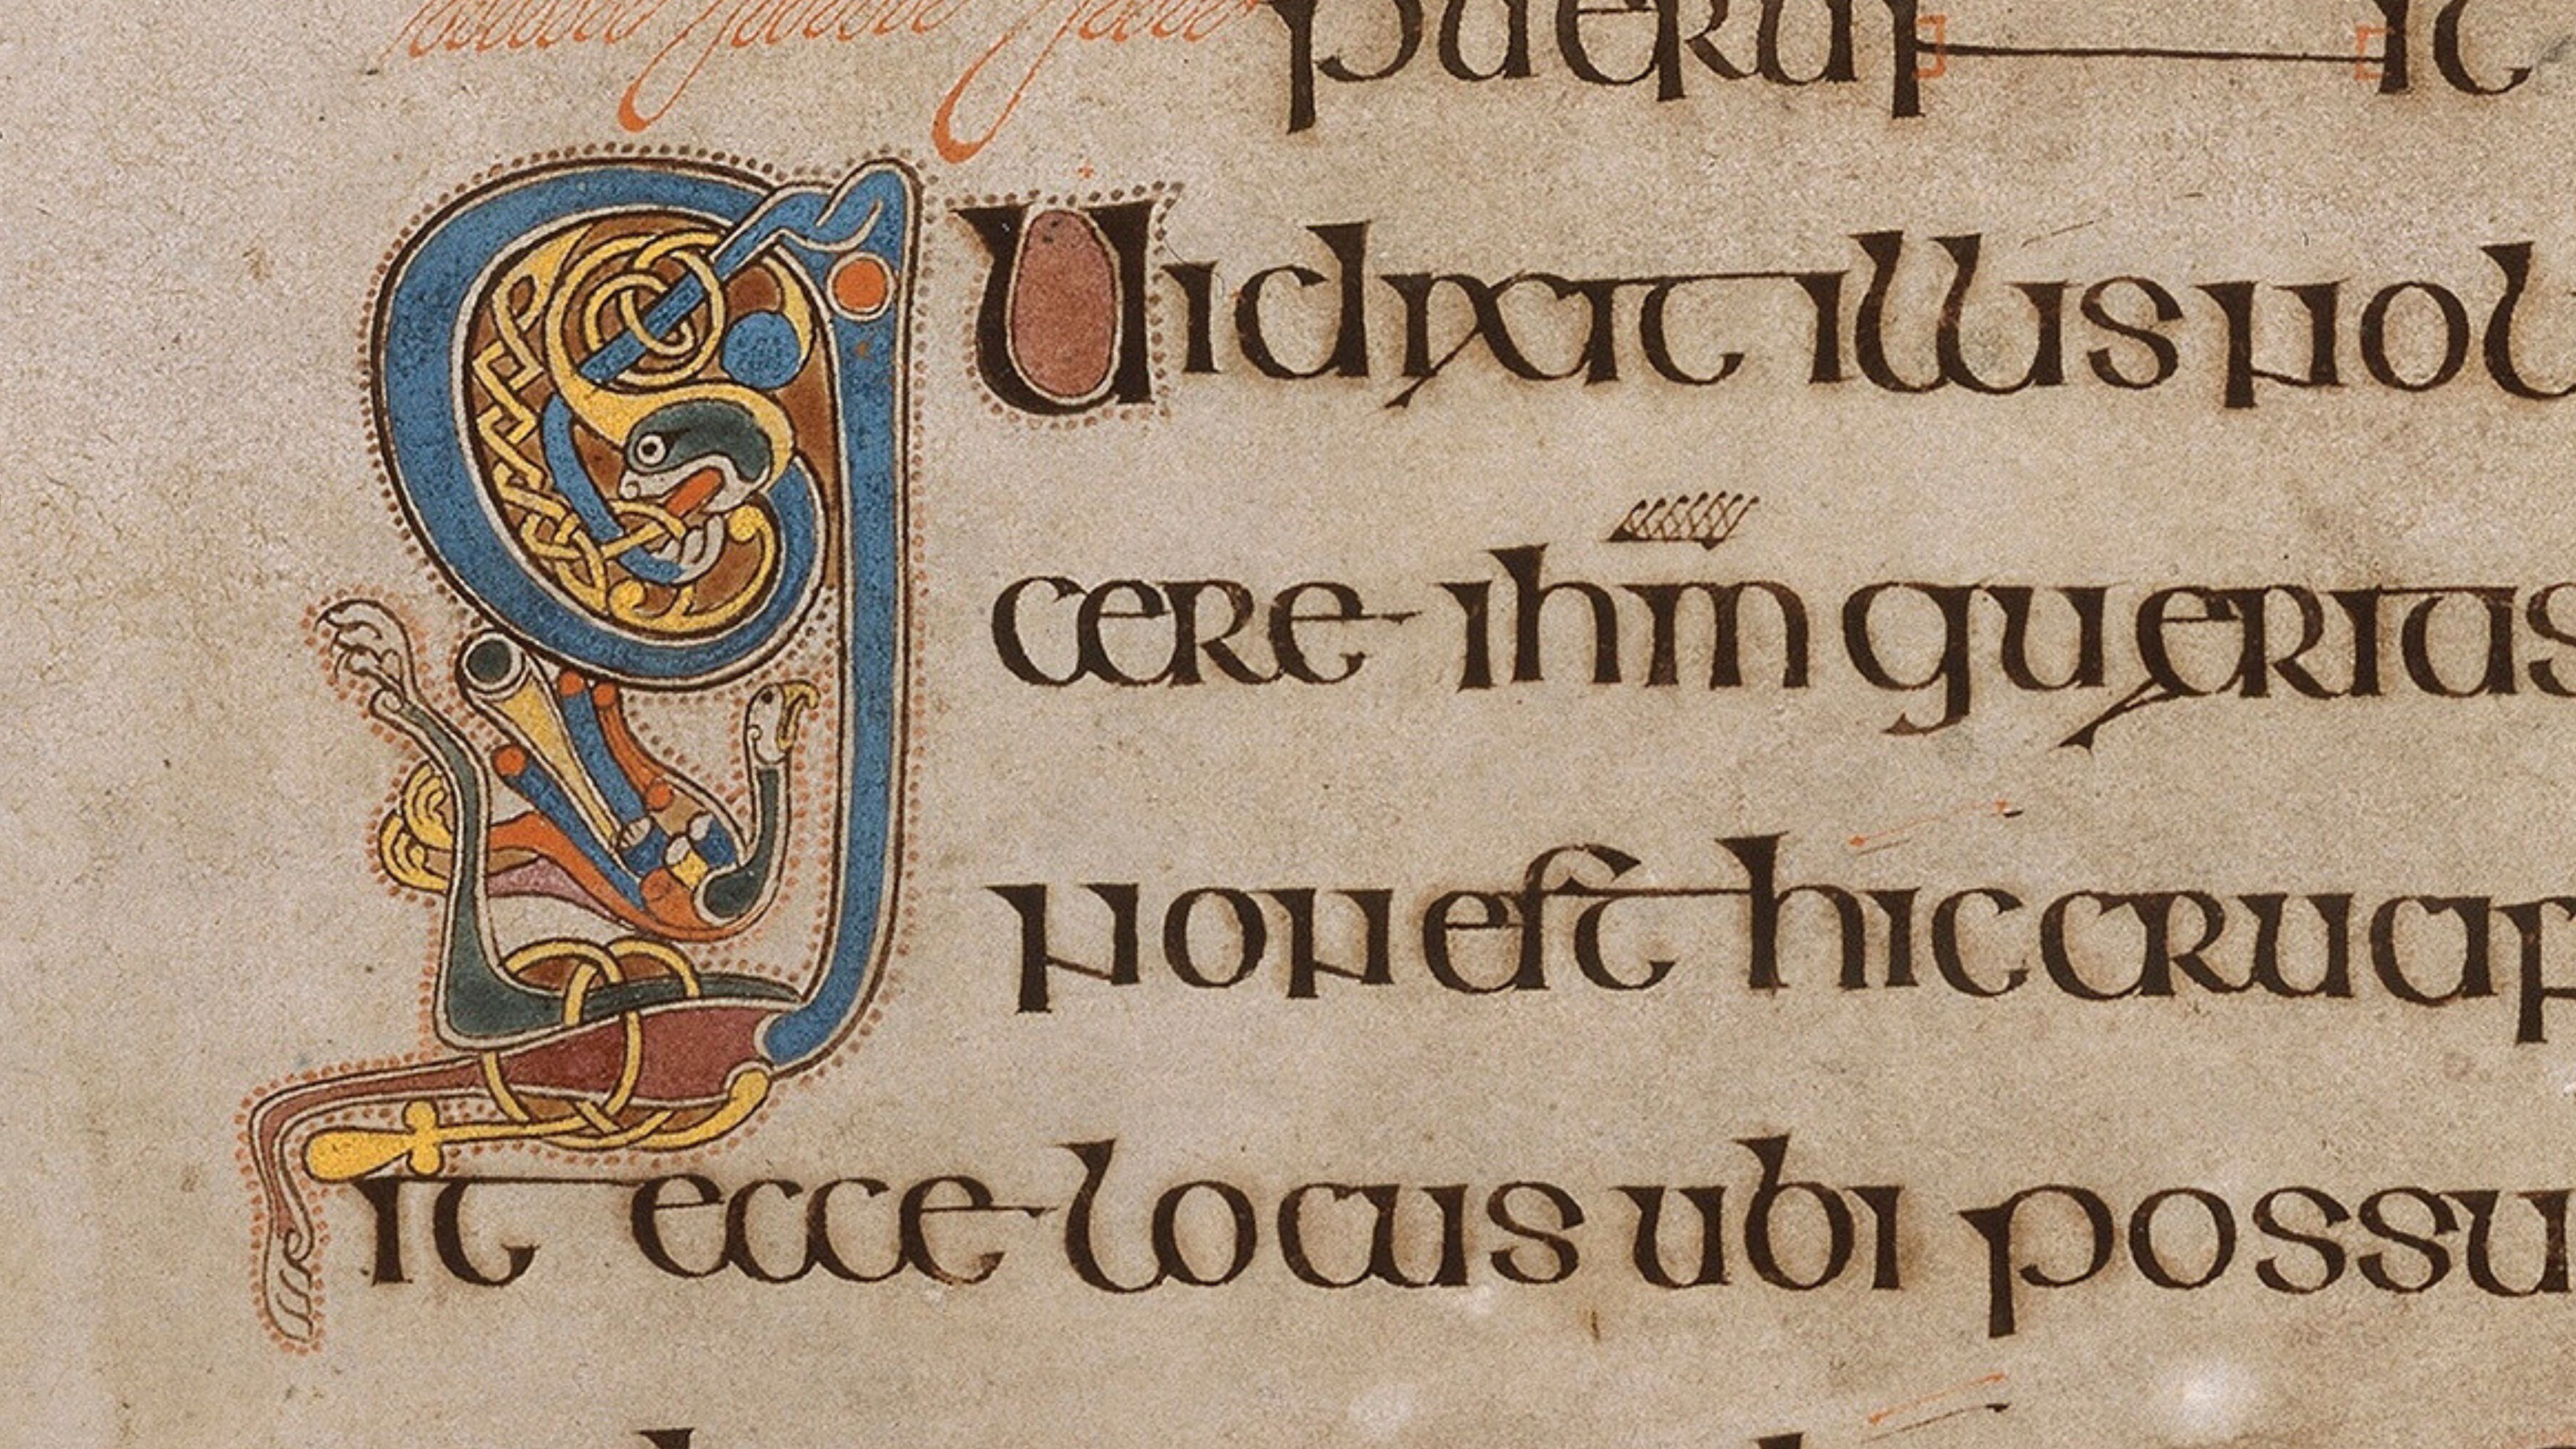 puerun it
Quidixit illis nol
cere ihm queritas
non est hic cruap
it ecce locus ubi possu